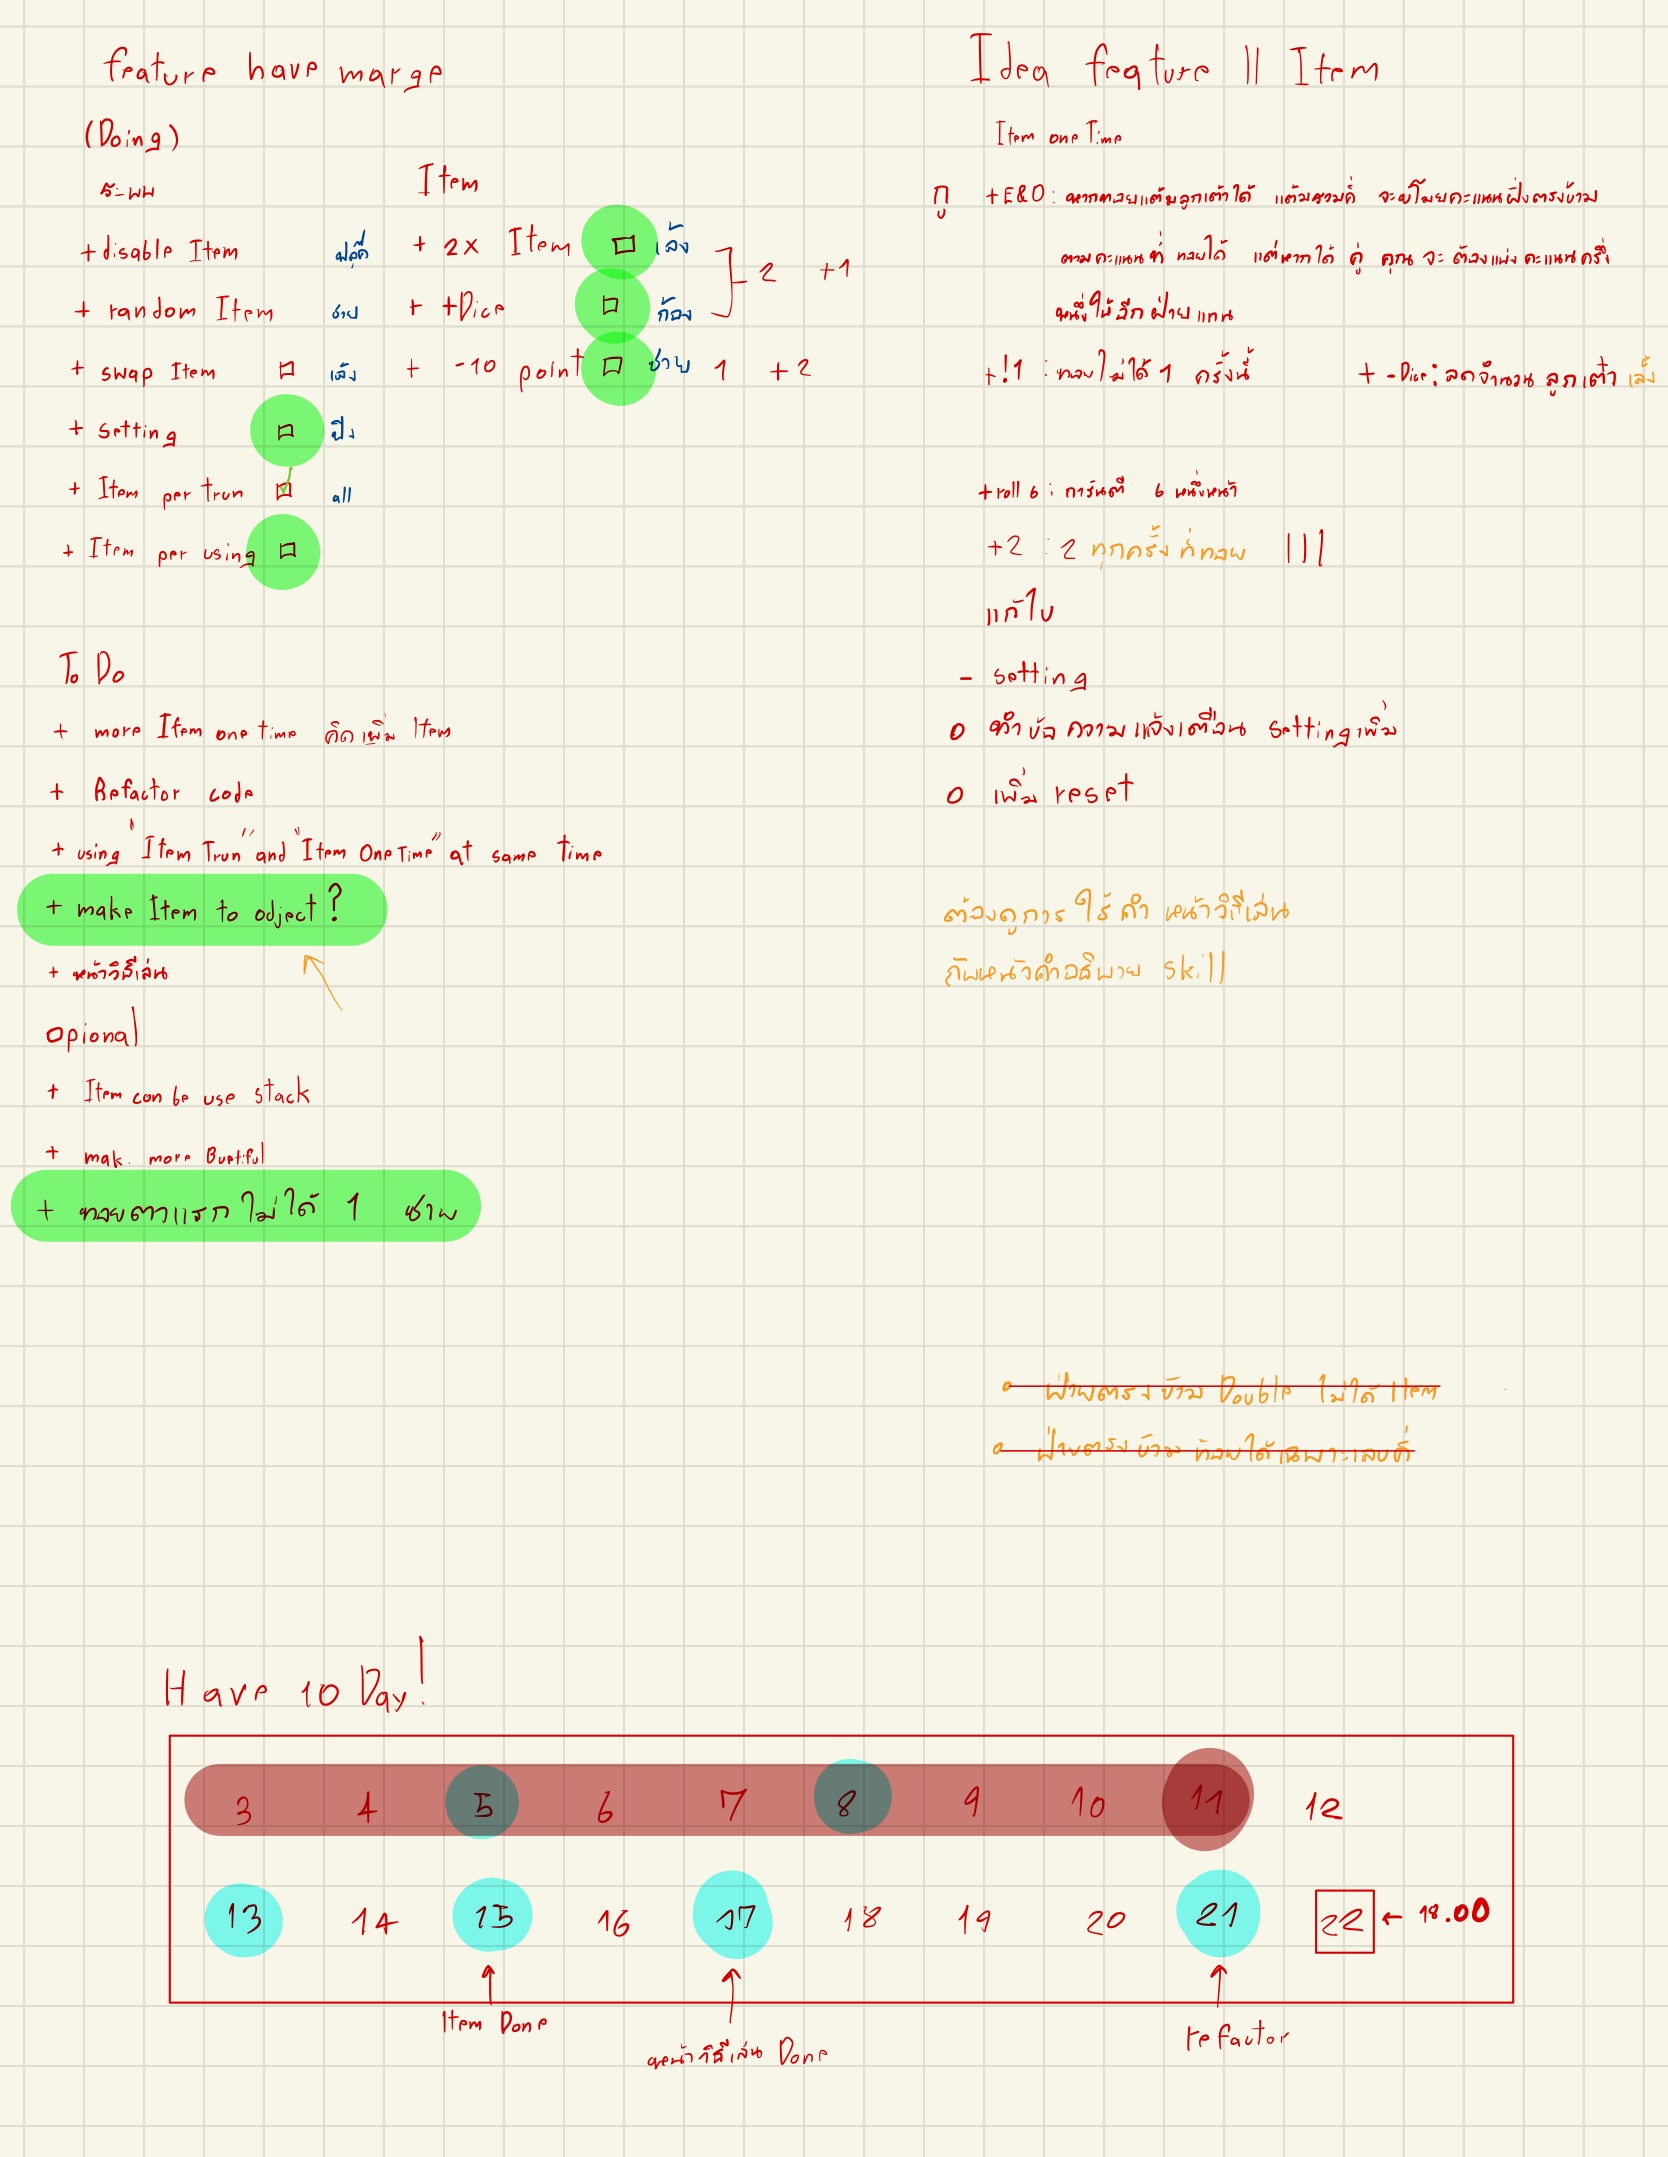 feature have marge
(Doing)
ระบบ
Item
+ disable Item ฟลุ๊ค
+ random Item ชาย
+ swap Item เล้ง
+ setting ปิง
+ Item per trun all
+ Item per using
+ 2x Item เล้ง
+ +Dice ก้อง
2 +1
+ -10 point ชาย 1 +2
To Do
+ more Item one time คิดเพิ่ม Item
+ Refactor code
+ using "Item Trun" and "Item One Time" at same time
+ make Item to odject?
+ หน้าวิธีเล่น
Opional
+ Item can be use stack
+ mak. more Buetiful
+ ทอยตาแรกไม่ได้ 1 ชาย
Idea feature || Item
Item one Time
กู +E&O: หากทอยแต้มลูกเต๋าได้ แต้มรวมคี่ จะขโมยคะแนนฝั่งตรงข้าม
ตามคะแนนที่ ทอยได้ แต่หากได้ คู่ คุณจะต้องแบ่งคะแนนครึ่ง
หนึ่งให้อีกฝ่ายแทน
+!1 : ทอยไม่ได้ 1 ครั้งนี้
+ -Dice: ลดจำนวน ลูกเต๋า เล้ง
+roll 6: การันตี 6 หนึ่งหน้า
+2 : 2 ทุกครั้งที่ทอย |||
แก้ไข
- setting
o ทำข้อความแจ้งเตือน setting เพิ่ม
o เพิ่ม reset
ต้องดูการใช้คำ หน้าวิธีเล่น
กับหน้าคำอธิบาย skill
ฝ่ายตรงข้าม Double ไม่ได้ Item
ฝ่ายตรงข้าม ทอยได้เฉพาะเลขคี่
Have 10 Day!
3 4 5 6 7 8 9 10 11 12
13 14 15 16 17 18 19 20 21 22 ← 18.00
Item Done
หน้าวิธีเล่น Done
refactor